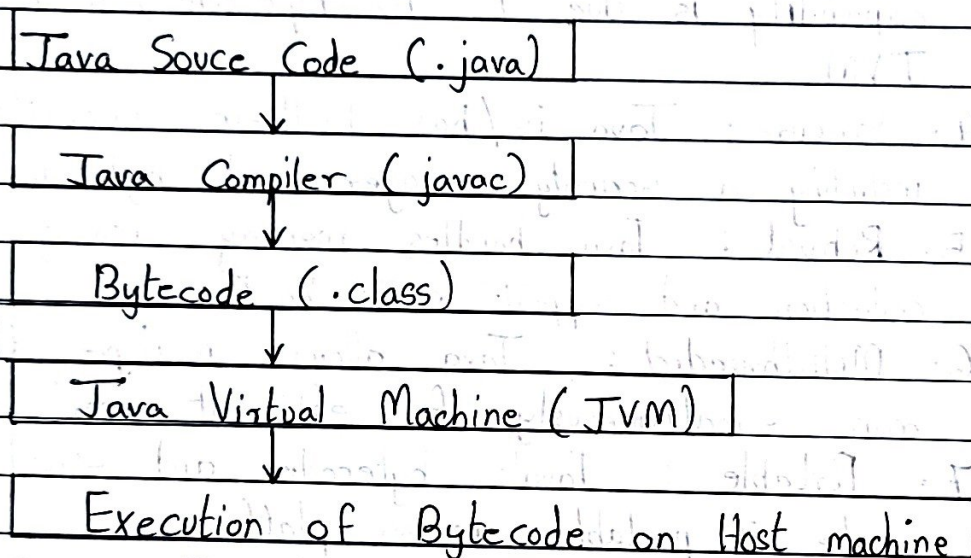 Java Souce Code (.java)
Java Compiler (javac)
Bytecode (.class)
Java Virtual Machine (JVM)
Execution of Bytecode on Host machine